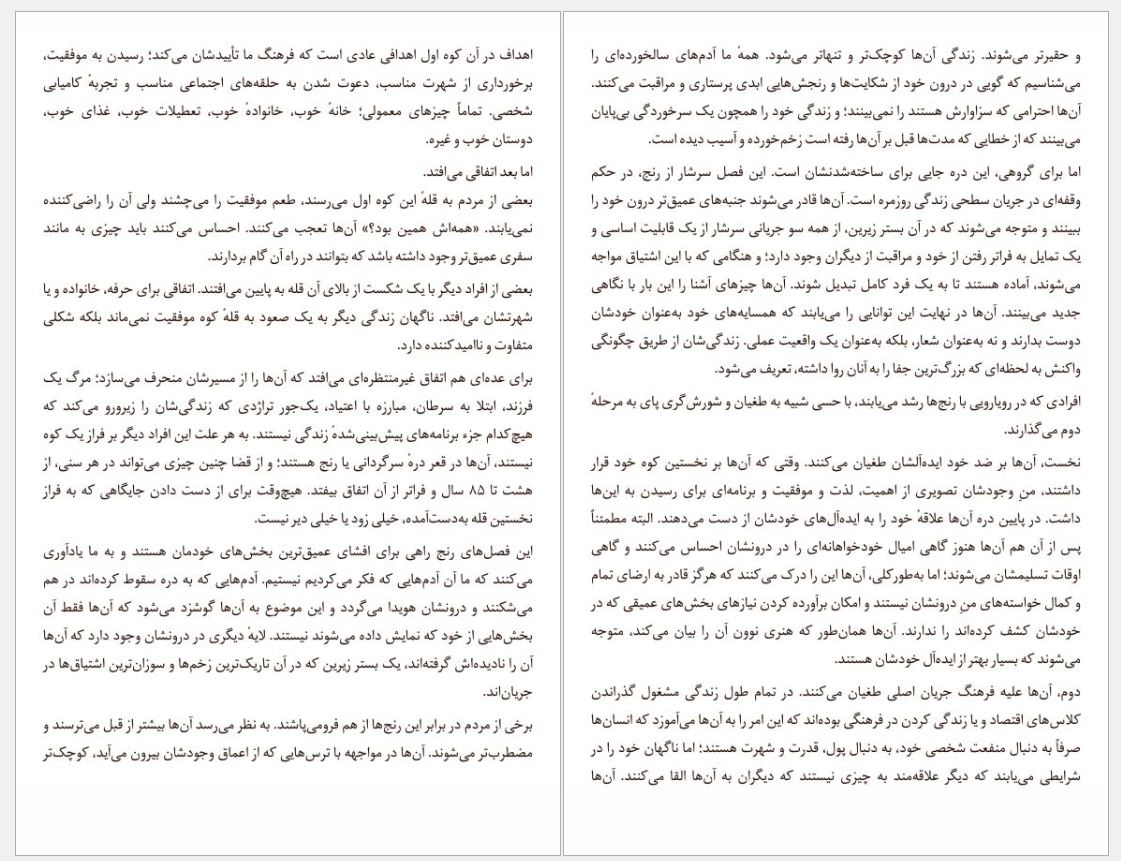 اهداف در آن کوه اول اهدافی عادی است که فرهنگ ما تأییدشان می‌کند؛ رسیدن به موفقیت،
برخورداری از شهرت مناسب، دعوت شدن به حلقه‌های اجتماعی مناسب و تجربهٔ کامیابی
شخصی. تماماً چیزهای معمولی؛ خانهٔ خوب، خانوادهٔ خوب، تعطیلات خوب، غذای خوب،
دوستان خوب و غیره.
اما بعد اتفاقی می‌افتد.
بعضی از مردم به قلهٔ این کوه اول می‌رسند، طعم موفقیت را می‌چشند ولی آن را راضی‌کننده
نمی‌یابند. «همه‌اش همین بود؟» آن‌ها تعجب می‌کنند. احساس می‌کنند باید چیزی به مانند
سفری عمیق‌تر وجود داشته باشد که بتوانند در راه آن گام بردارند.
بعضی از افراد دیگر با یک شکست از بالای آن قله به پایین می‌افتند. اتفاقی برای حرفه، خانواده و یا
شهرتشان می‌افتد. ناگهان زندگی دیگر به یک صعود به قلهٔ کوه موفقیت نمی‌ماند بلکه شکلی
متفاوت و ناامیدکننده دارد.
برای عده‌ای هم اتفاق غیرمنتظره‌ای می‌افتد که آن‌ها را از مسیرشان منحرف می‌سازد؛ مرگ یک
فرزند، ابتلا به سرطان، مبارزه با اعتیاد، یک‌جور تراژدی که زندگی‌شان را زیرورو می‌کند که
هیچ‌کدام جزء برنامه‌های پیش‌بینی‌شدهٔ زندگی نیستند. به هر علت این افراد دیگر بر فراز یک کوه
نیستند، آن‌ها در قعر درهٔ سرگردانی یا رنج هستند؛ و از قضا چنین چیزی می‌تواند در هر سنی، از
هشت تا ۸۵ سال و فراتر از آن اتفاق بیفتد. هیچ‌وقت برای از دست دادن جایگاهی که به فراز
نخستین قله به‌دست‌آمده، خیلی زود یا خیلی دیر نیست.
این فصل‌های رنج راهی برای افشای عمیق‌ترین بخش‌های خودمان هستند و به ما یادآوری
می‌کنند که ما آن آدم‌هایی که فکر می‌کردیم نیستیم. آدم‌هایی که به دره سقوط کرده‌اند در هم
می‌شکنند و درونشان هویدا می‌گردد و این موضوع به آن‌ها گوشزد می‌شود که آن‌ها فقط آن
بخش‌هایی از خود که نمایش داده می‌شوند نیستند. لایهٔ دیگری در درونشان وجود دارد که آن‌ها
آن را نادیده‌اش گرفته‌اند، یک بستر زیرین که در آن تاریک‌ترین زخم‌ها و سوزان‌ترین اشتیاق‌ها در
جریان‌اند.
برخی از مردم در برابر این رنج‌ها از هم فرومی‌پاشند. به نظر می‌رسد آن‌ها بیشتر از قبل می‌ترسند و
مضطرب‌تر می‌شوند. آن‌ها در مواجهه با ترس‌هایی که از اعماق وجودشان بیرون می‌آید، کوچک‌تر
و حقیرتر می‌شوند. زندگی آن‌ها کوچک‌تر و تنهاتر می‌شود. همهٔ ما آدم‌های سالخورده‌ای را
می‌شناسیم که گویی در درون خود از شکایت‌ها و رنجش‌هایی ابدی پرستاری و مراقبت می‌کنند.
آن‌ها احترامی که سزاوارش هستند را نمی‌بینند؛ و زندگی خود را همچون یک سرخوردگی بی‌پایان
می‌بینند که از خطایی که مدت‌ها قبل بر آن‌ها رفته است زخم‌خورده و آسیب دیده است.
اما برای گروهی، این دره جایی برای ساخته‌شدنشان است. این فصل سرشار از رنج، در حکم
وقفه‌ای در جریان سطحی زندگی روزمره است. آن‌ها قادر می‌شوند جنبه‌های عمیق‌تر درون خود را
ببینند و متوجه می‌شوند که در آن بستر زیرین، از همه سو جریانی سرشار از یک قابلیت اساسی و
یک تمایل به فراتر رفتن از خود و مراقبت از دیگران وجود دارد؛ و هنگامی که با این اشتیاق مواجه
می‌شوند، آماده هستند تا به یک فرد کامل تبدیل شوند. آن‌ها چیزهای آشنا را این بار با نگاهی
جدید می‌بینند. آن‌ها در نهایت این توانایی را می‌یابند که همسایه‌های خود به‌عنوان خودشان
دوست بدارند و نه به‌عنوان شعار، بلکه به‌عنوان یک واقعیت عملی. زندگی‌شان از طریق چگونگی
واکنش به لحظه‌ای که بزرگ‌ترین جفا را به آنان روا داشته، تعریف می‌شود.
افرادی که در رویارویی با رنج‌ها رشد می‌یابند، با حسی شبیه به طغیان و شورش‌گری پای به مرحلهٔ
دوم می‌گذارند.
نخست، آن‌ها بر ضد خود ایده‌آلشان طغیان می‌کنند. وقتی که آن‌ها بر نخستین کوه خود قرار
داشتند، منِ وجودشان تصویری از اهمیت، لذت و موفقیت و برنامه‌ای برای رسیدن به این‌ها
داشت. در پایین دره آن‌ها علاقهٔ خود را به ایده‌آل‌های خودشان از دست می‌دهند. البته مطمئناً
پس از آن هم آن‌ها هنوز گاهی امیال خودخواهانه‌ای را در درونشان احساس می‌کنند و گاهی
اوقات تسلیمشان می‌شوند؛ اما به‌طورکلی، آن‌ها این را درک می‌کنند که هرگز قادر به ارضای تمام
و کمال خواسته‌های منِ درونشان نیستند و امکان برآورده کردن نیازهای بخش‌های عمیقی که در
خودشان کشف کرده‌اند را ندارند. آن‌ها همان‌طور که هنری نوون آن را بیان می‌کند، متوجه
می‌شوند که بسیار بهتر از ایده‌آل خودشان هستند.
دوم، آن‌ها علیه فرهنگ جریان اصلی طغیان می‌کنند. در تمام طول زندگی مشغول گذراندن
کلاس‌های اقتصاد و یا زندگی کردن در فرهنگی بوده‌اند که این امر را به آن‌ها می‌آموزد که انسان‌ها
صرفاً به دنبال منفعت شخصی خود، به دنبال پول، قدرت و شهرت هستند؛ اما ناگهان خود را در
شرایطی می‌یابند که دیگر علاقه‌مند به چیزی نیستند که دیگران به آن‌ها القا می‌کنند. آن‌ها